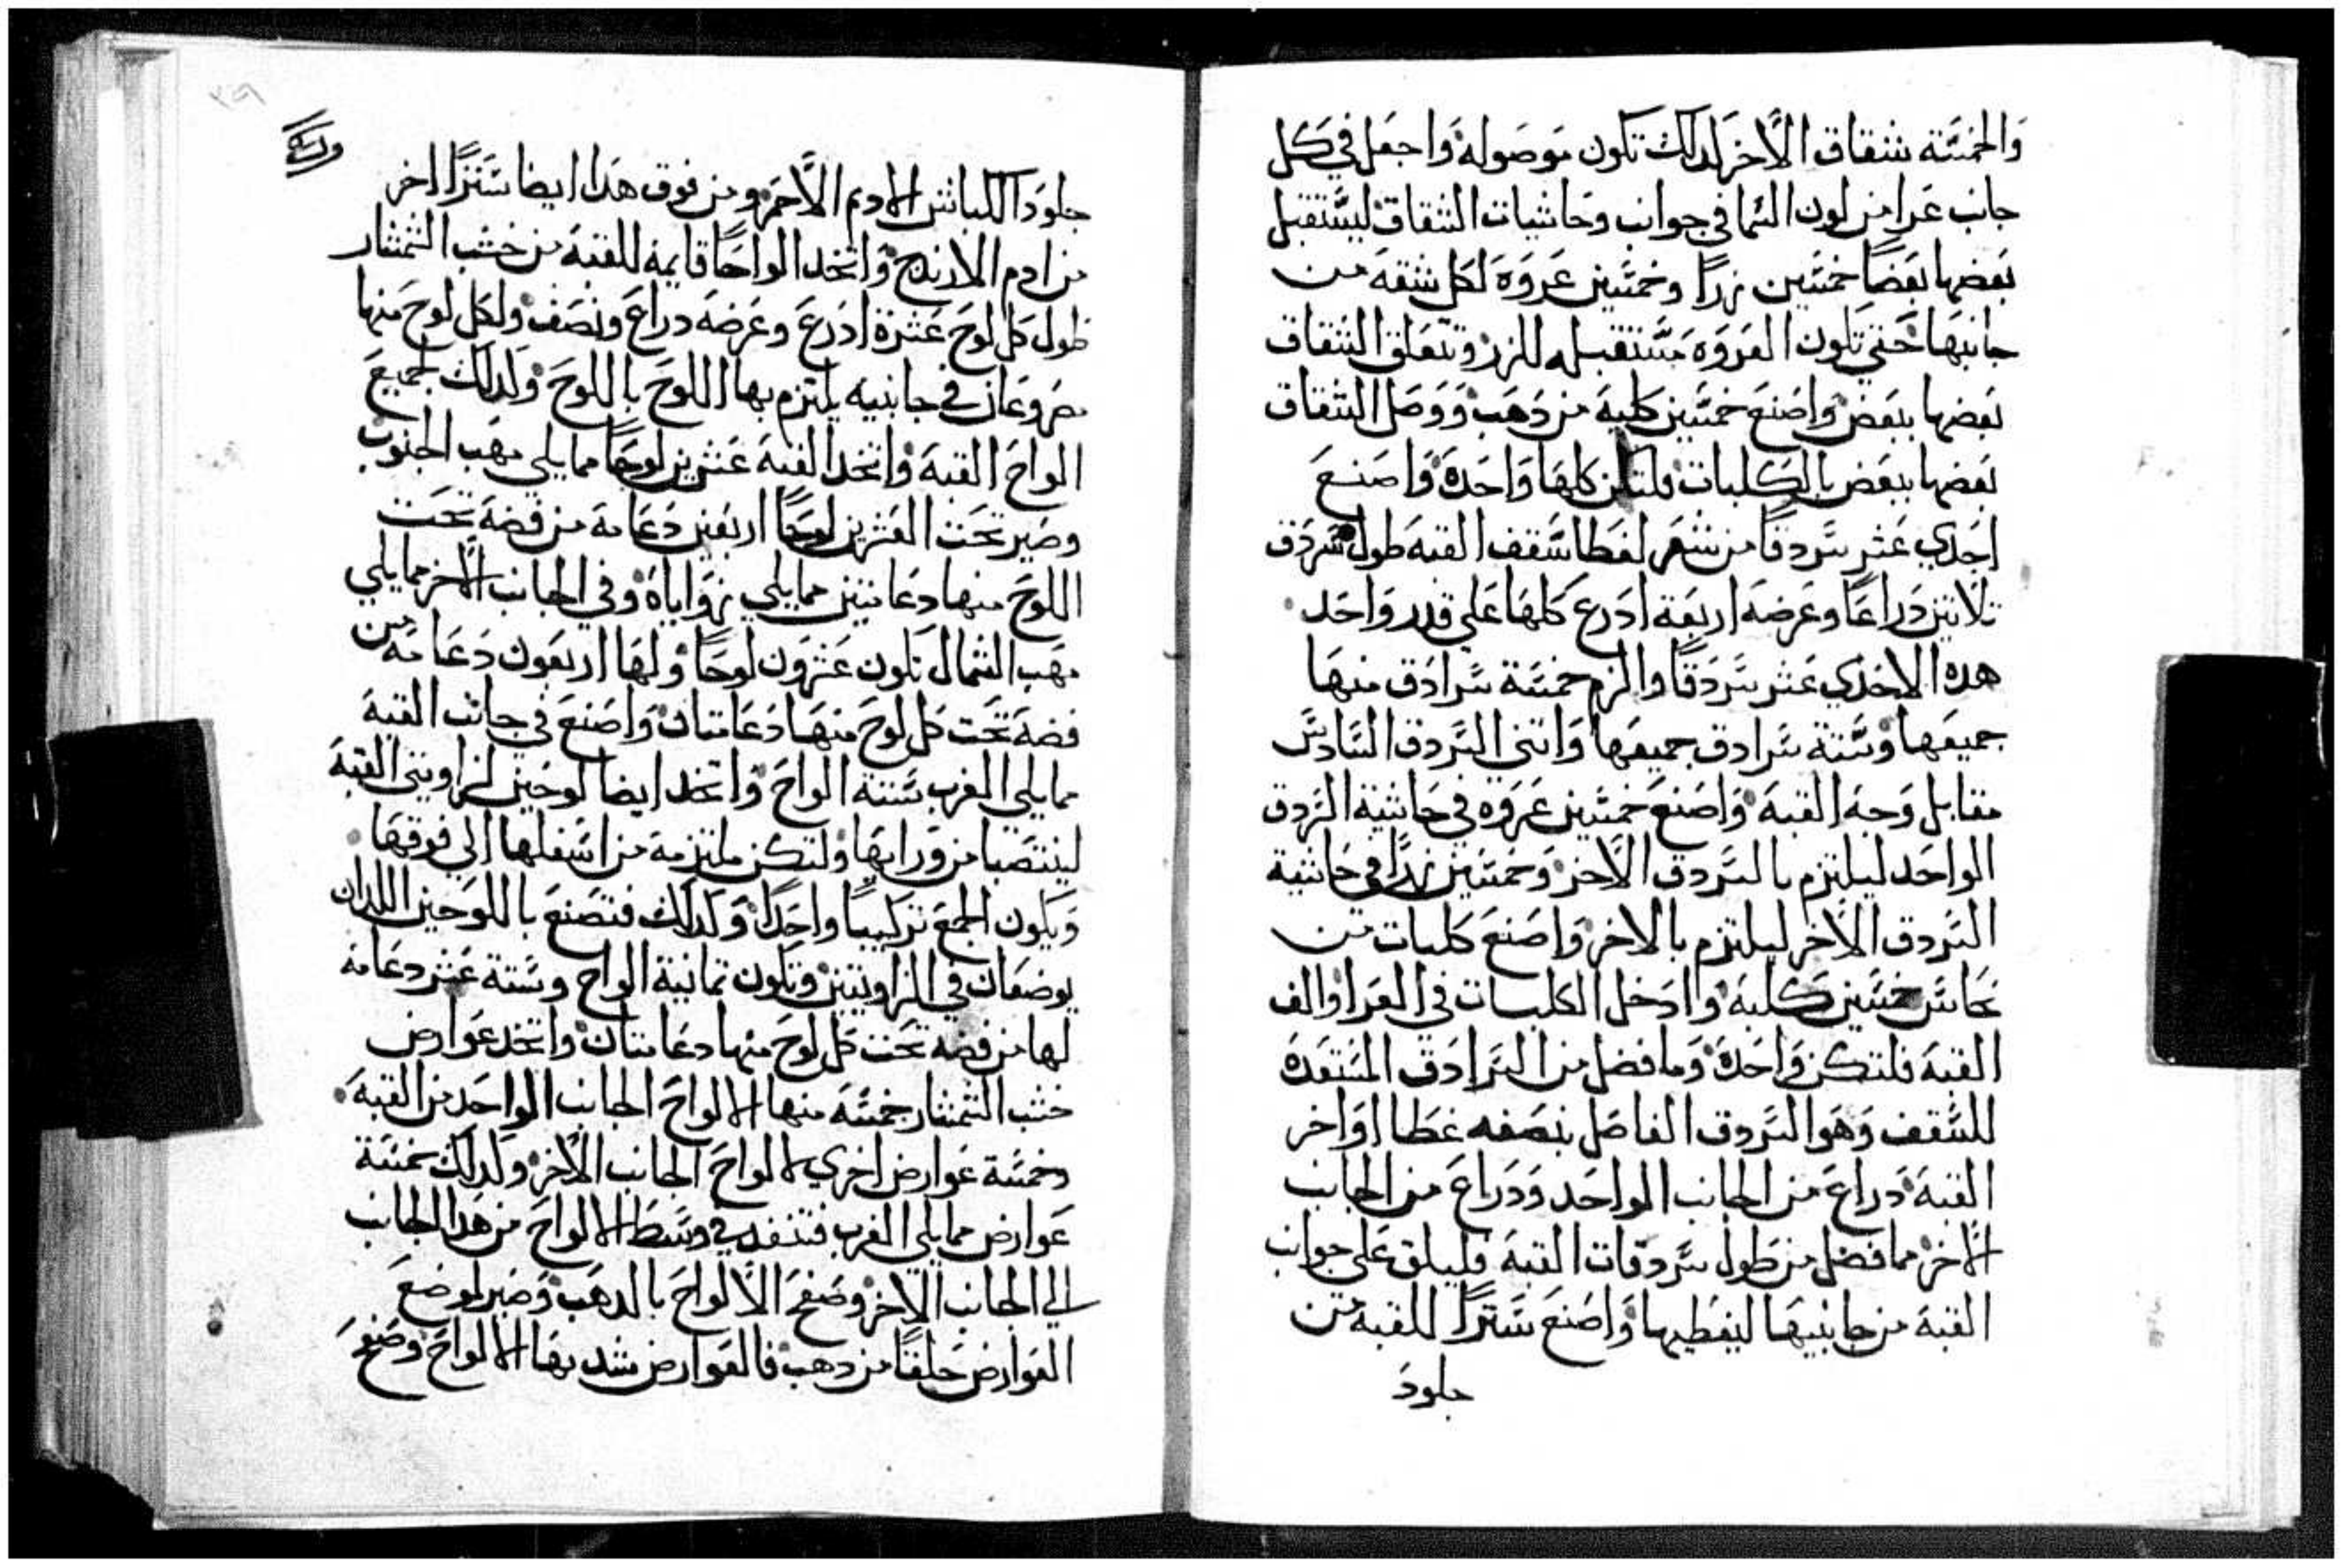 والخمسة شقاق الاخر لدلك تكون موصوله واجعل في كل
جانب عرا من لون السما في جوانب وحاشيات الشقاق ليستقبل
بعضها بعضًا خمسين زرًا وخمسين عروة لكل شقة من
جانبها حتي تكون العروة مستقبله للزر وتتعلق الشقاق
بعضها ببعض واصنع خمسين كلبة من دهب ووصل الشقاق
بعضها ببعض بالكلبات فلتكن كلها واحدة واصنع
احدي عشر سردقًا من شعر لغطا سقف القبة طول سردق
تلاتين دراعًا وعرضه اربعة ادرع كلها علي قدر واحد
هده الاحدي عشر سردقًا والزم خمسة سرادق منها
جميعها وستة سرادق جميعها واتني السردق السادس
مقابل وجه القبة واصنع خمسين عروه في حاشية السردق
الواحد ليلتزم بالسردق الاخر وخمسين زرًا في حاشية
السردق الاخر ليلتزم بالاخر واصنع كلبات من
نحاس خمسين كلبة واادخل الكلبات في العرا والف
القبة فلتكن واحدة وما فضل من السرادق المستعدة
للسقف وهو السردق الفاضل بنصفه غطا اواخر
القبة دراع من الجانب الواحد ودراع من الجانب
الاخر مما فضل من طول سردقات القبة فليلق علي جوانب
القبة من جانبيها ليغطيها واصنع سترًا للقبة من
جلود
٢٩
جلود الكباش الادم الاحمر ومن فوق هدا ايضا سترًا اخر
من ادم الارندج واتخد الواحًا قايمة للقبة من خشب الشمشار
طول كل لوح عشرة ادرع وعرضه دراع ونصف ولكل لوح منها
مصروعان في جانبيه يلتزم بها اللوح باللوح ولدلك لجميع
الواح القبة واتخد القبة عشرين لوحًا مما يلي مهب الجنوب
وصير تحت العشرين لوحًا اربعين دعامة من فضة تحت
اللوح منها دعامتين مما يلي زواياه وفي الجانب الاخر مما يلي
مهب الشمال تكون عشرون لوحًا ولها اربعون دعامة من
فضة تحت كل لوح منها دعامتان واصنع في جانب القبة
مما يلي الغرب ستة الواح واتخد ايضا لوحين لزاويتي القبة
لينتصبا من ورايها ولتكن ملتزمة من اسفلها الي فوقها
ويكون الجمع تركيبًا واحدًا وكدلك فتصنع باللوحين اللدان
يوضعان في الزاويتين وتكون تمانية الواح وستة عشر دعامة
لها من فضة تحت كل لوح منها دعامتان واتخد عوارض
خشب الشمشار خمسة منها لالواح الجانب الواحد من القبة
وخمسة عوارض اخري لالواح الجانب الاخر ولدلك خمسة
عوارض مما يلي الغرب فتنفد في وسط الالواح من هدا الجانب
الي الجانب الاخر وصفح الالواح بالدهب وصير لموضع
العوارض حلقًا من دهب فالعوارض شد بها الالواح وصفح